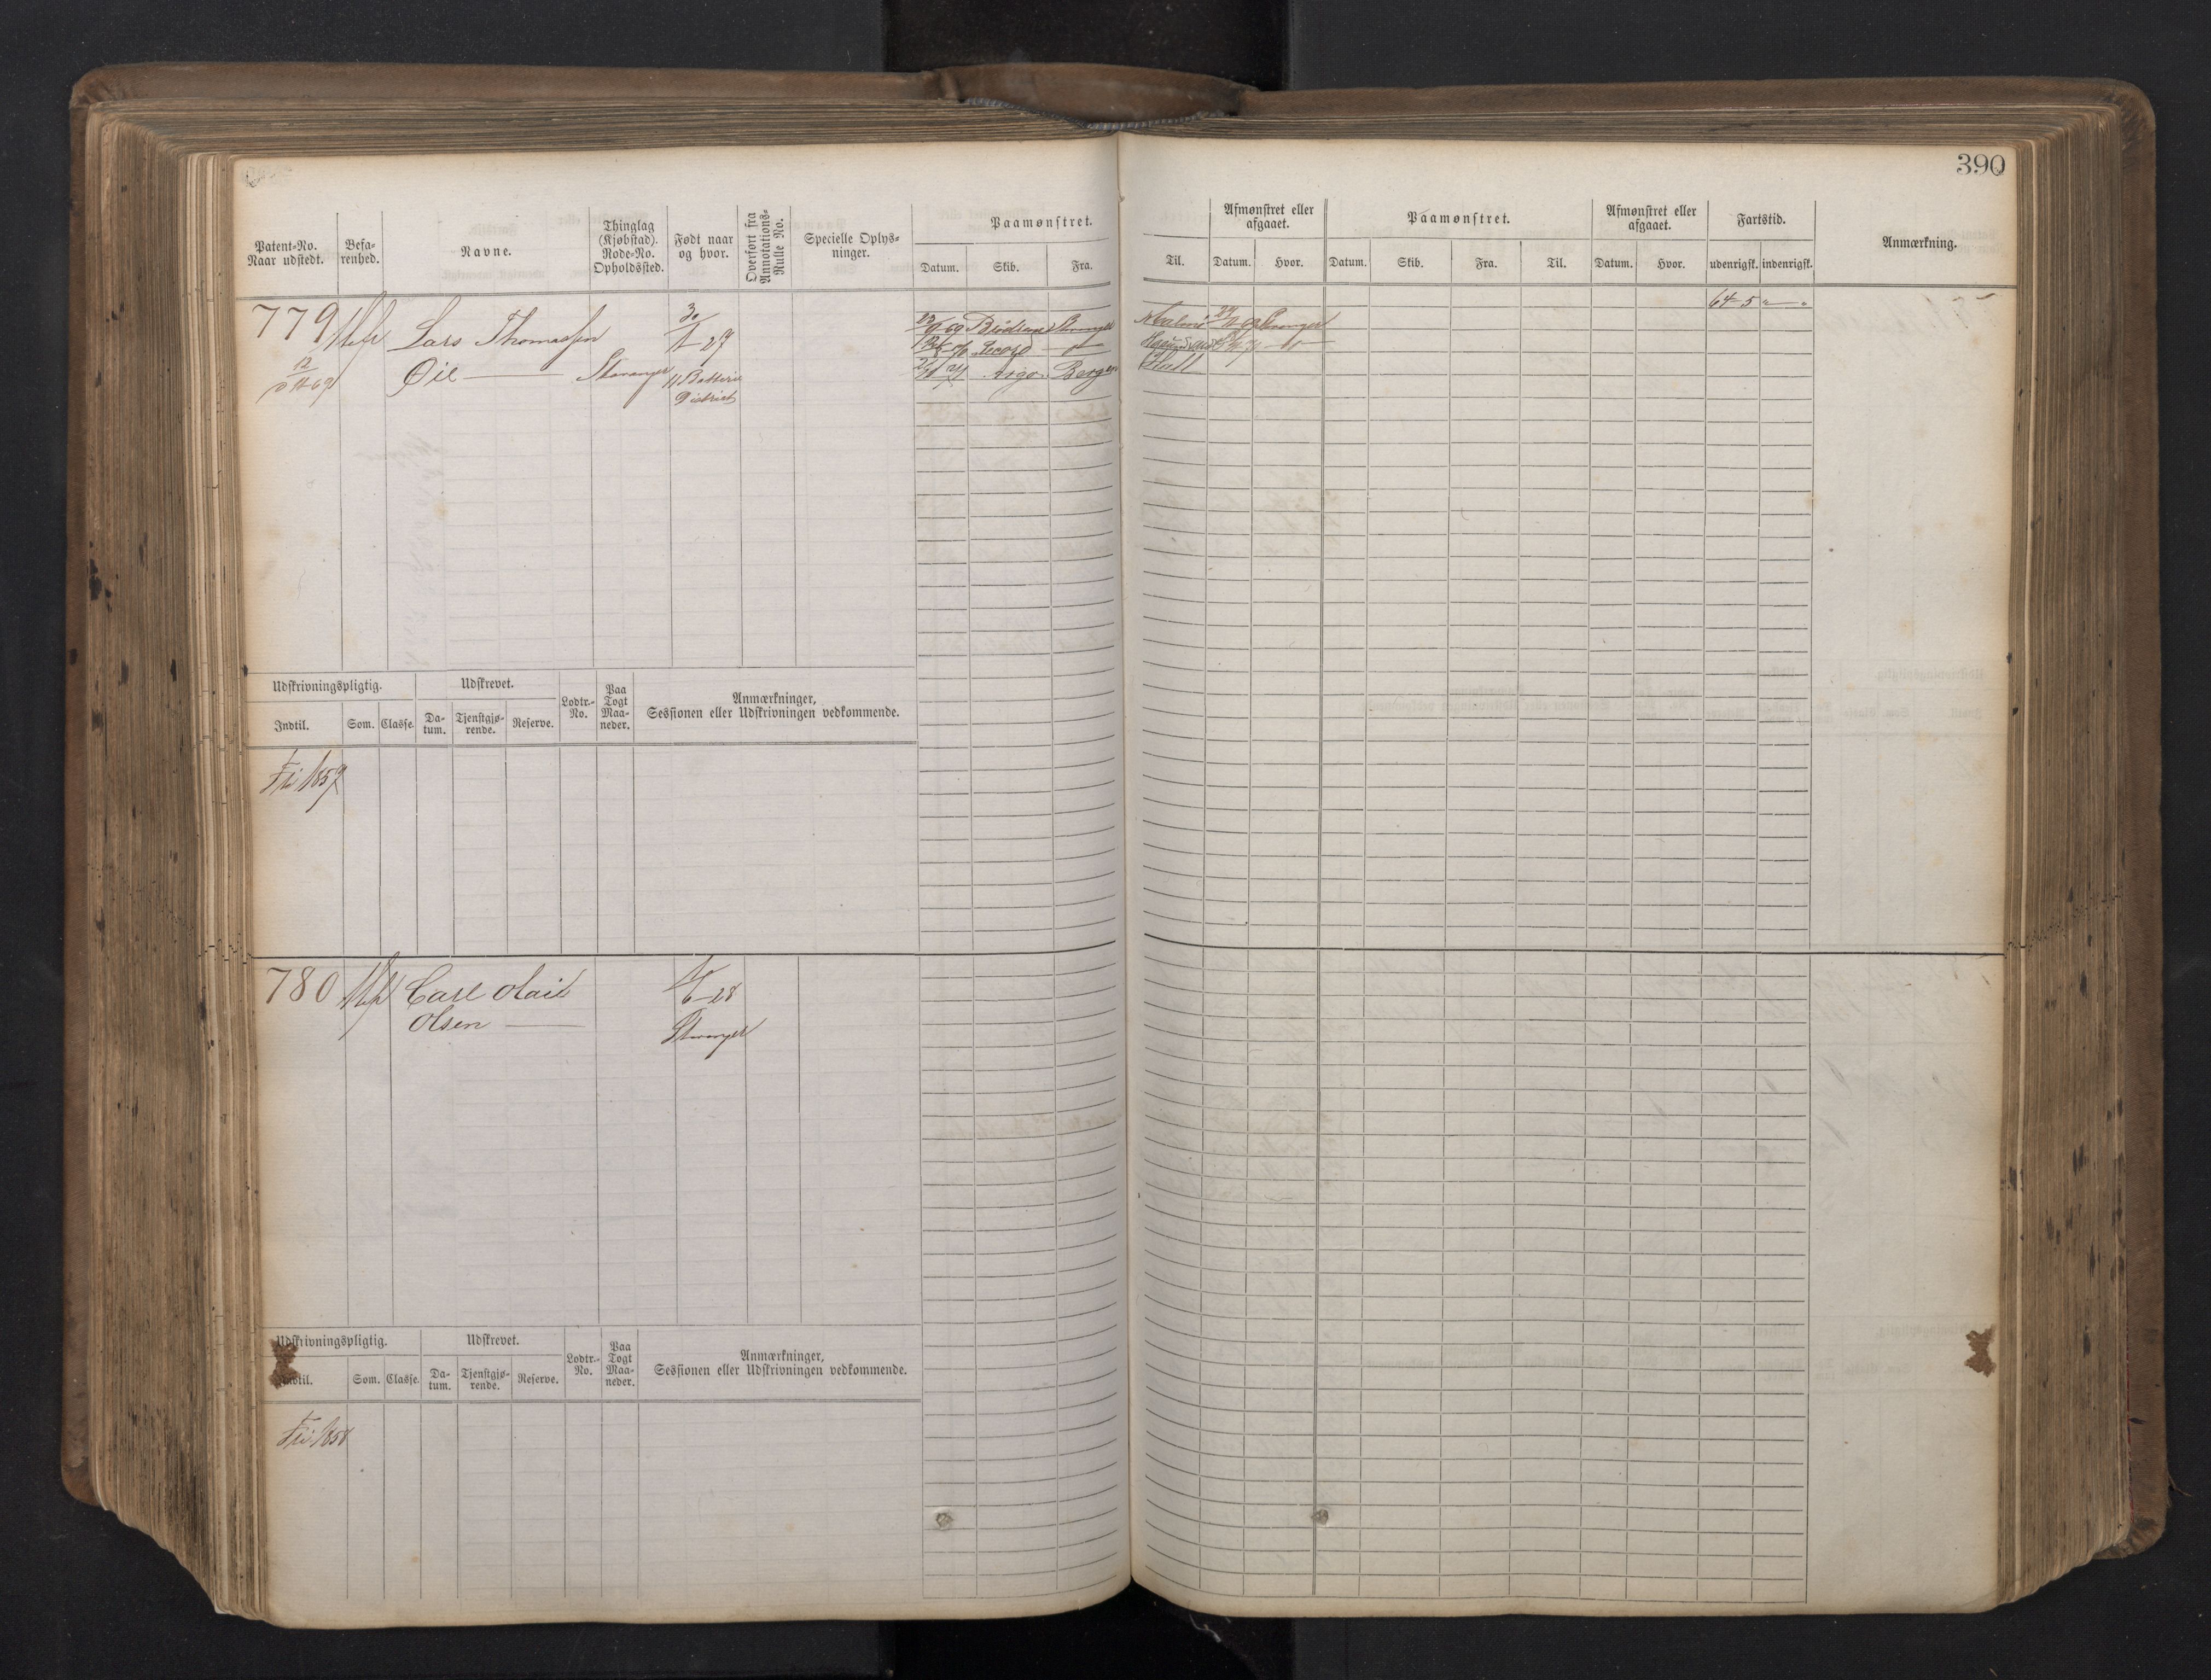 390
Patent-No.
Naar udstedt.
Befa-
renhed.
Navne.
Thinglag
(Kjøbstad).
Rode-No.
Opholdssted.
Født naar
og hvor.
Overført fra
Annotations-
Rulle No.
Specielle Oplys-
ninger.
Paamønstret.
Datum. Skib. Fra.
Til.
Afmønstret eller
afgaaet.
Datum. Hvor.
Paamønstret.
Datum. Skib. Fra. Til.
Afmønstret eller
afgaaet.
Datum. Hvor.
Fartstid.
udenrigsk. indenrigsk.
Anmærkning.
779
Lars Thomassen
Øie
Stavanger
30
27
Batterie
District
Stavanger
Record
Argo Bergen
Stavanger
Hull
64 - 5
Udskrivningspligtig.
Indtil. Som. Classe.
Udskrevet.
Da-
tum.
Tjenstgjø-
rende.
Reserve.
Lodtr.-
No.
Paa
Togt
Maa-
neder.
Anmærkninger,
Sessionen eller Udskrivningen vedkommende.
Fri 1857
780
Carl Olai
Olsen
28
Stavanger
Udskrivningspligtig.
Indtil. Som. Classe.
Udskrevet.
Da-
tum.
Tjenstgjø-
rende.
Reserve.
Lodtr.-
No.
Paa
Togt
Maa-
neder.
Anmærkninger,
Sessionen eller Udskrivningen vedkommende.
Fri 1858